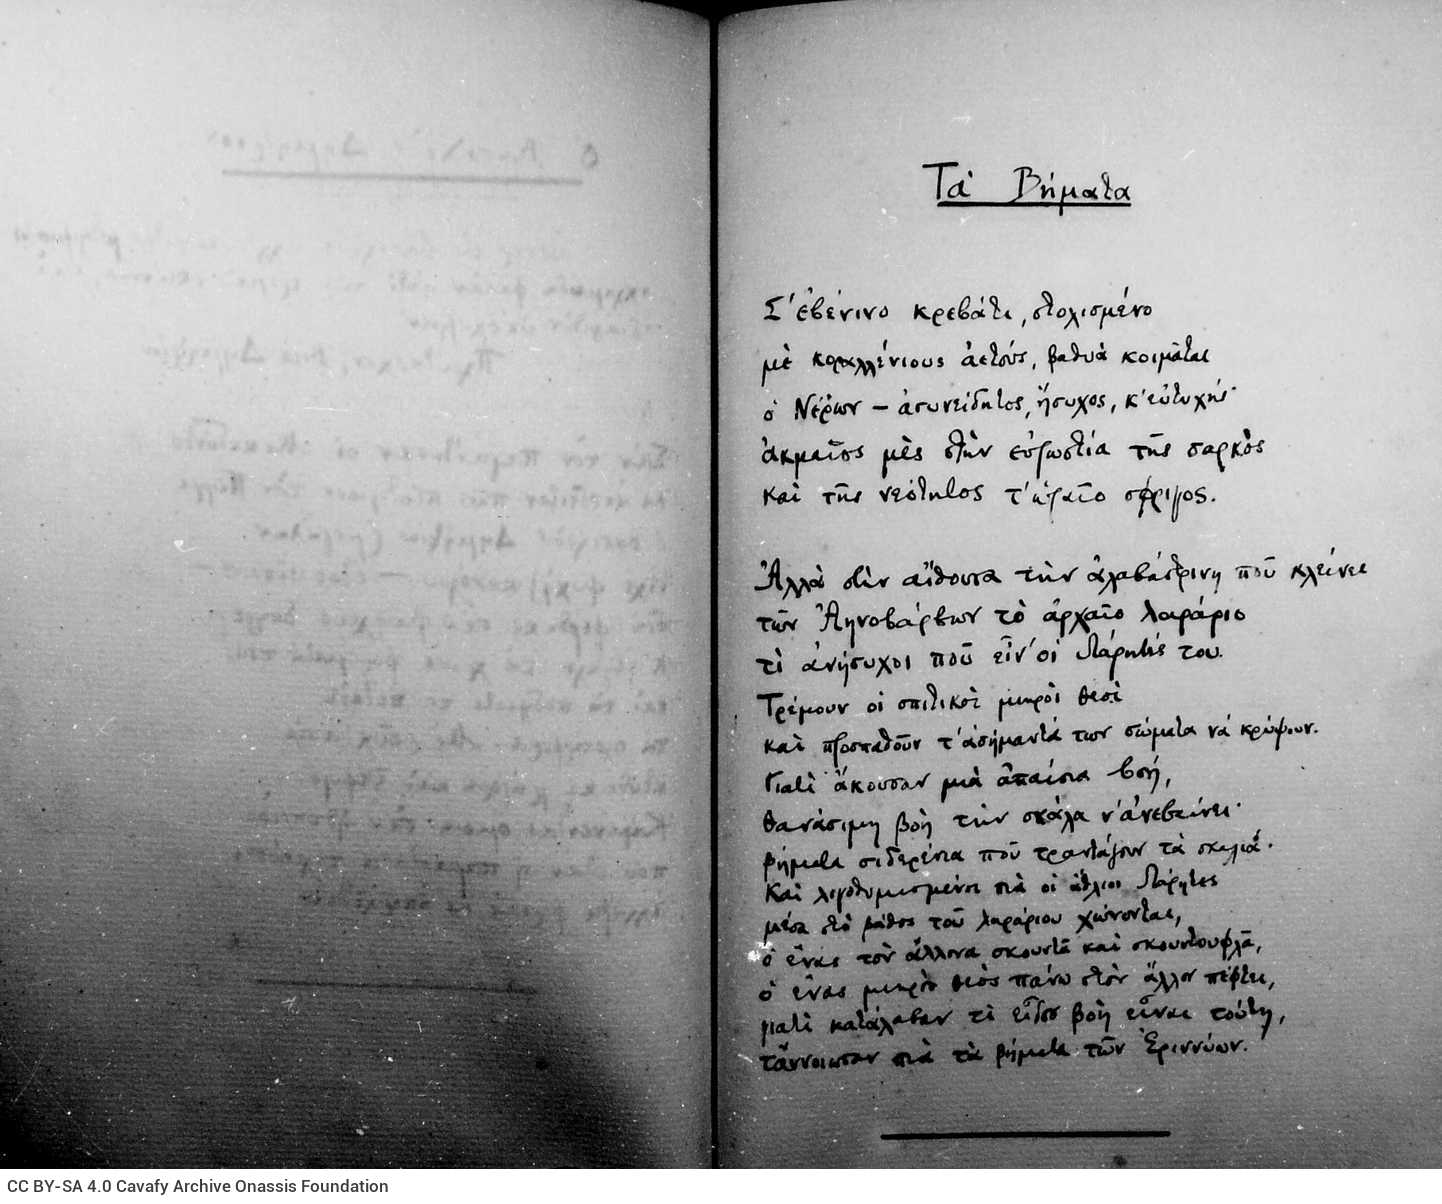 Τὰ Βήματα
Σ' ἐβένινο κρεβάτι, στολισμένο
μὲ κοραλλένιους ἀετούς, βαθυὰ κοιμᾶται
ὁ Νέρων — ἀσυνείδητος, ἥσυχος, κ' εὐτυχής·
ἀκμαῖος μὲς στὴν εὐρωστία τῆς σαρκὸς
καὶ τῆς νεότητος τ' ὡραῖο σφρίγος.
Ἀλλὰ στὴν αἴθουσα τὴν ἀλαβάστρινη ποῦ κλείνει
τῶν Ἀηνοβάρβων τὸ ἀρχαῖο λαράριο
τὶ ἀνήσυχοι ποῦ εἶν' οἱ Λάρητές του.
Τρέμουν οἱ σπιτικοὶ μικροὶ θεοὶ
καὶ προσπαθοῦν τ' ἀσήμαντά των σώματα νὰ κρύψουν.
Γιατὶ ἄκουσαν μιὰ ἀπαίσια βοή,
θανάσιμη βοὴ τὴν σκάλα ν' ἀνεβαίνει·
βήματα σιδερένια ποῦ τραντάζουν τὰ σκαλιά.
Καὶ λιγοθυμισμένοι πιὰ οἱ ἄθλιοι Λάρητες
μέσα στὸ βάθος τοῦ λαράριου χώνονται,
ὁ ἕνας τὸν ἄλλονα σκουντᾶ καὶ σκουντουφλᾶ,
ὁ ἕνας μικρὸς θεὸς πάνω στὸν ἄλλον πέφτει,
γιατὶ κατάλαβαν τὶ εἶδος βοὴ εἶναι τούτη,
τἄννοιωσαν πιὰ τὰ βήματα τῶν Ἐριννύων.
CC BY-SA 4.0 Cavafy Archive Onassis Foundation